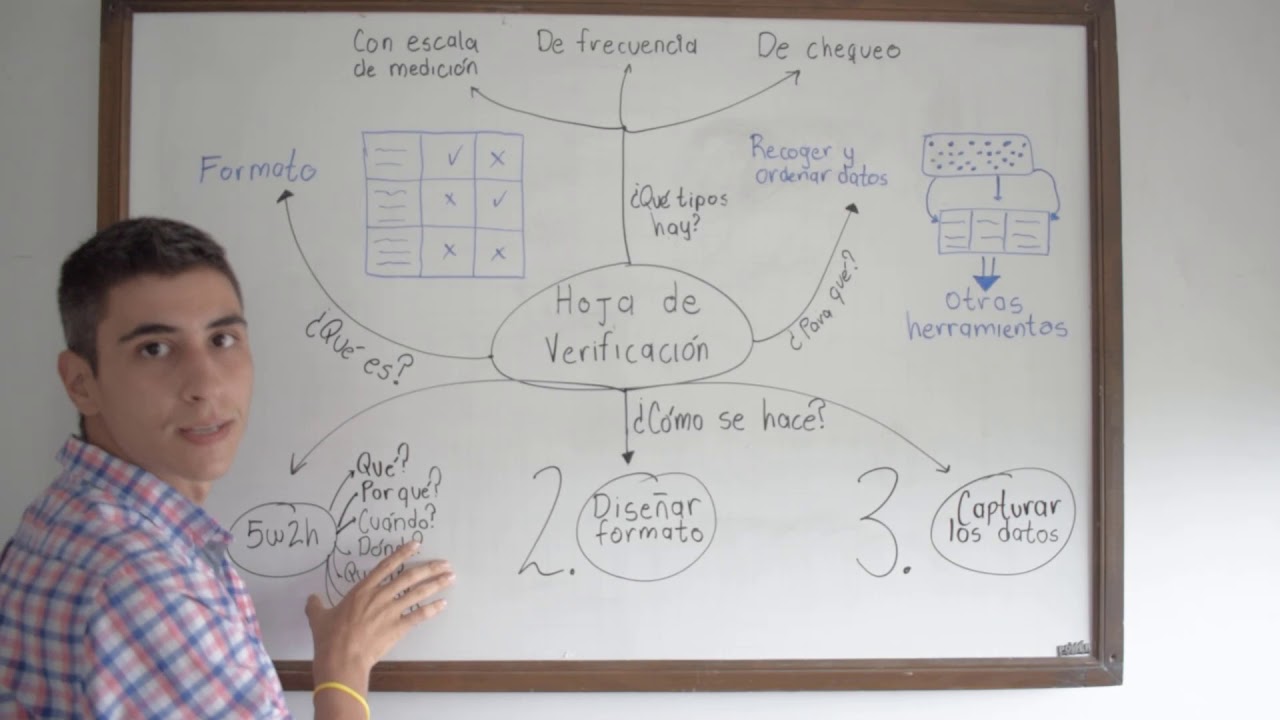 Con escala
de medición
De frecuencia
De chequeo
Formato
Recoger y
ordenar datos
¿Qué tipos
hay?
Otras
herramientas
Hoja de
Verificación
¿Qué es?
¿Para qué?
¿Cómo se hace?
5w2h
Qué?
Por qué?
Cuándo?
2.
Diseñar
formato
3.
Capturar
los datos